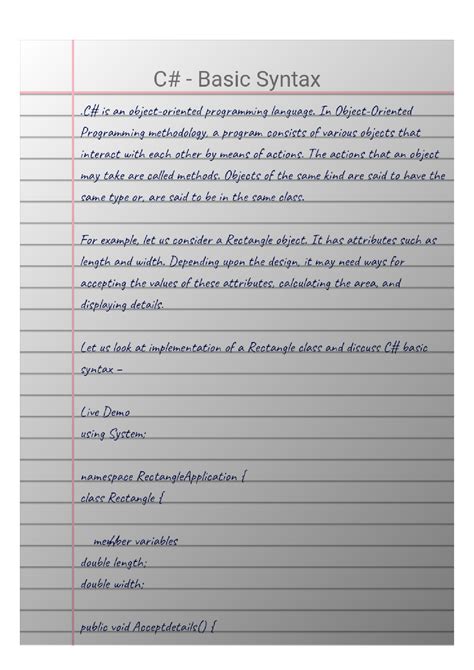 C# - Basic Syntax
.C# is an object-oriented programming language. In Object-Oriented
Programming methodology, a program consists of various objects that
interact with each other by means of actions. The actions that an object
may take are called methods. Objects of the same kind are said to have the
same type or, are said to be in the same class.
For example, let us consider a Rectangle object. It has attributes such as
length and width. Depending upon the design, it may need ways for
accepting the values of these attributes, calculating the area, and
displaying details.
Let us look at implementation of a Rectangle class and discuss C# basic
syntax –
Live Demo
using System;
namespace RectangleApplication {
class Rectangle {
member variables
double length;
double width;
public void Acceptdetails() {